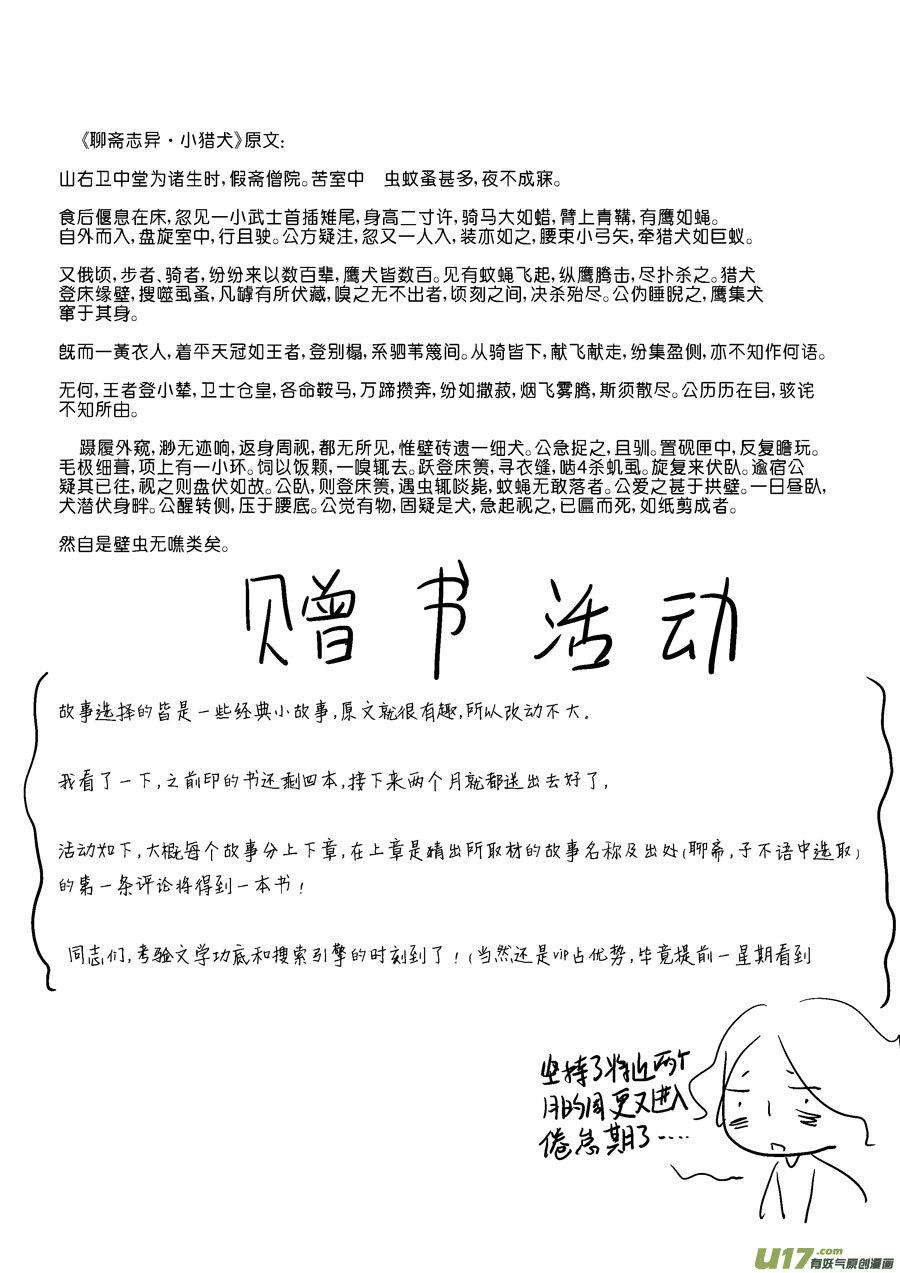 《聊斋志异·小猎犬》原文:
山右卫中堂为诸生时,假斋僧院。苦室中 虫蚊蚤甚多,夜不成寐。
食后偃息在床,忽见一小武士首插雉尾,身高二寸许,骑马大如蜡,臂上青鞲,有鹰如蝇。
自外而入,盘旋室中,行且驶。公方疑注,忽又一人入,装亦如之,腰束小弓矢,牵猎犬如巨蚁。
又俄顷,步者、骑者,纷纷来以数百辈,鹰犬皆数百。见有蚊蝇飞起,纵鹰腾击,尽扑杀之。猎犬
登床缘壁,搜噬虱蚤,凡罅有所伏藏,嗅之无不出者,顷刻之间,决杀殆尽。公伪睡睨之,鹰集犬
窜于其身。
既而一黄衣人,着平天冠如王者,登别榻,系驷苇篾间。从骑皆下,献飞献走,纷集盈侧,亦不知作何语。
无何,王者登小辇,卫士仓皇,各命鞍马,万蹄攒奔,纷如撒菽,烟飞雾腾,斯须散尽。公历历在目,骇诧
不知所由。
蹑履外窥,渺无迹响,返身周视,都无所见,惟壁砖遗一细犬。公急捉之,且驯。置砚匣中,反复瞻玩。
毛极细葺,项上有一小环。饲以饭颗,一嗅辄去。跃登床箦,寻衣缝,啮4杀虮虱。旋复来伏卧。逾宿公
疑其已往,视之则盘伏如故。公卧,则登床箦,遇虫辄啖毙,蚊蝇无敢落者。公爱之甚于拱璧。一日昼卧,
犬潜伏身畔。公醒转侧,压于腰底。公觉有物,固疑是犬,急起视之,已匾而死,如纸剪成者。
然自是壁虫无噍类矣。
赠书活动
故事选择的皆是一些经典小故事,原文就很有趣,所以改动不大。
我看了一下,之前印的书还剩四本,接下来两个月就都送出去好了,
活动如下,大概每个故事分上下章,在上章是猜出所取材的故事名称及出处(聊斋,子不语中选取)
的第一条评论将得到一本书!
同志们,考验文学功底和搜索引擎的时刻到了!(当然还是vip占优势,毕竟提前一星期看到
坚持了将近两个
月的周更又进入
倦怠期了····
U17.com
有妖气原创漫画